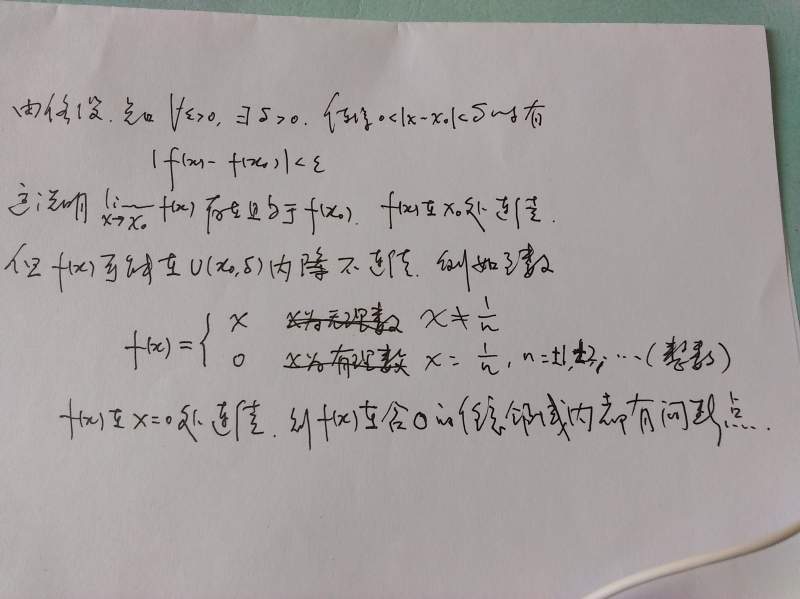 由假设,知 ∀ε>0,∃δ>0,使得 0<|x-x₀|<δ 时有
|f(x)-f(x₀)|<ε
这说明 lim_{x→x₀} f(x) 存在且等于 f(x₀). f(x)在x₀处连续.
但 f(x)可能在 U(x₀,δ)内 不连续. 例如函数
f(x)={ x x≠1/n
0 x=1/n, n=±1,±2,…(整数)
f(x)在x=0处连续. 但f(x)在含0的任意邻域内都有间断点.